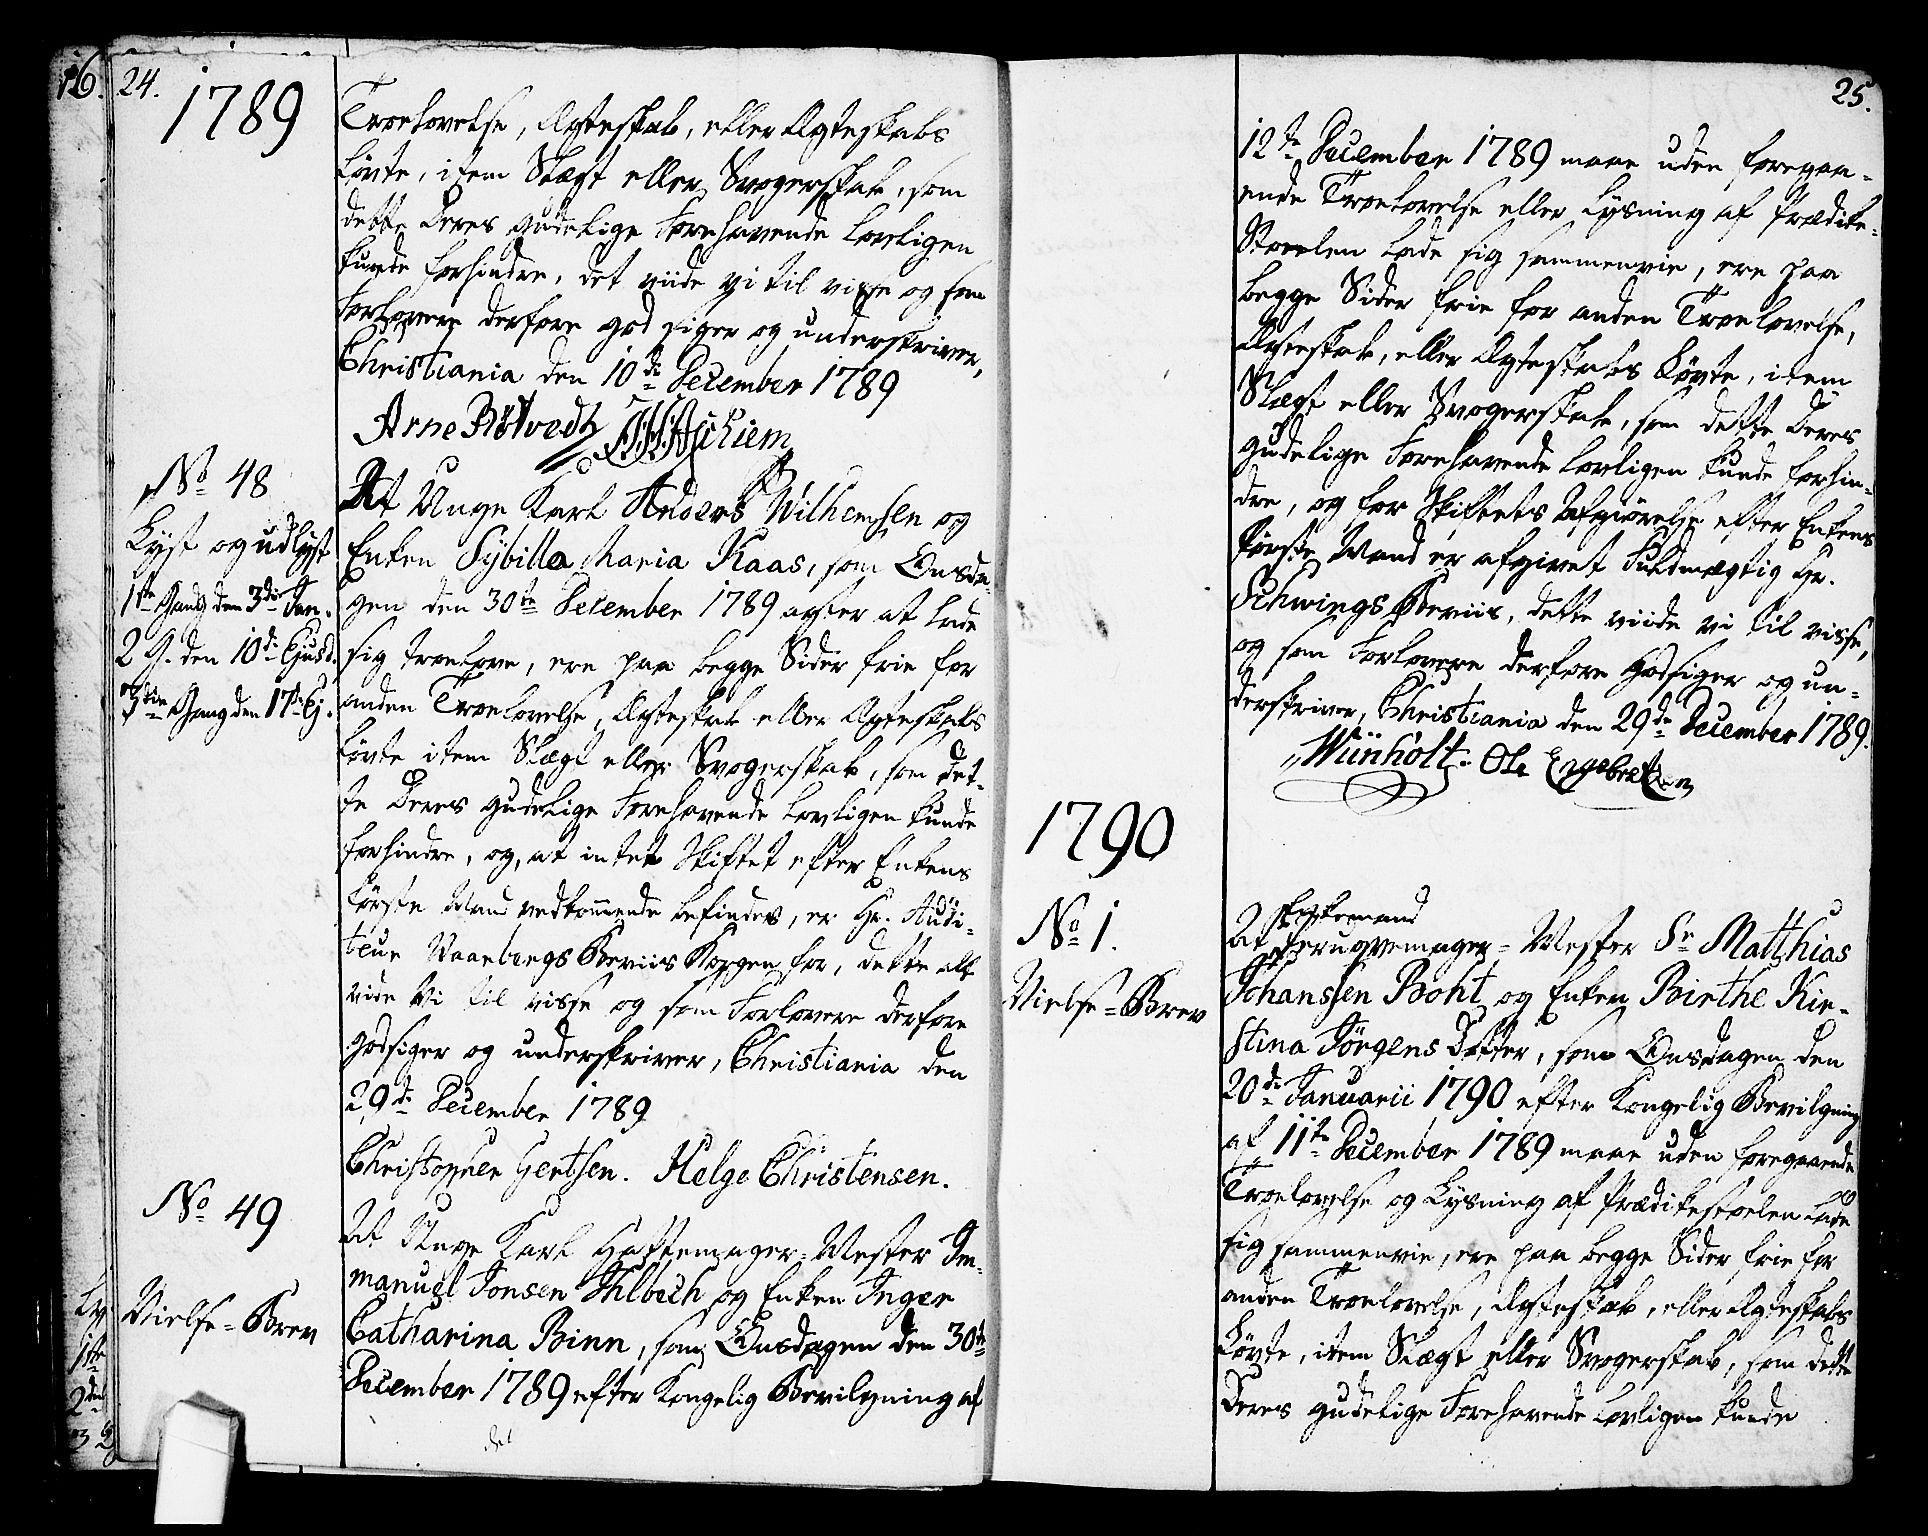 24.
1789
Troelovelse, Ægteskab, eller Ægteskabs
Løvte, item Slægt eller Svogerskab, som
dette Deres gudelige Forehavende lovligen
kunde forhindre, det viide vi til visse og som
Forlovere derfore god siger og underskriver,
Christiania den 10de December 1789
Arne Røtvedt
No 48
Lyst og udlyst
1te Gang den 3die Jan.
2 G. den 10de Ejusd.
3die Gang den 17de Ej.
At Unge Karl Anders Wilhemsen og
Enken Sybilla Maria Kaas, som Onsda-
gen den 30te December 1789 agter at lade
sig troelove, ere paa begge Sider frie for
anden Troelovelse, Ægteskab eller Ægteskabs
Løvte item Slægt eller Svogerskab, som det-
te Deres gudelige Forehavende lovligen kunde
forhindre, og, at intet Skiftet efter Enkens
første Mand vedkommende befindes, er Hr. Audi-
teur Beviis Borgen for, dette alt
viide vi til visse og som Forlovere derfore
godsiger og underskriver, Christiania den
29de December 1789
Christopher Gertsen. Helge Christensen.
No 49
Vielse-Brev
At Unge Karl Hattemager-Mester Im-
manuel Jonsen Ihlbech og Enken Inger
Catharina Binn, som Onsdagen den 30te
December 1789 efter Kongelig Bevilgning af
25.
12te December 1789 maae uden foregaa-
ende Troelovelse eller Lysning af Prædike-
Stoelen lade sig sammenvie, ere paa
begge Sider frie for anden Troelovelse,
Ægteskab, eller Ægteskabs Løvte, item
Slægt eller Svogerskab, som dette Deres
gudelige Forehavende lovligen kunde forhin-
dre, og for Skiftets Afgiørelse efter Enkens
første Mand er afgivet Fuldmægtig Hr.
Schwings Beviis, dette viide vi til visse,
og som Forlovere derfore godsiger og un-
derskriver, Christiania den 29de December 1789.
Wünholt. Ole Engebretsen
1790
No 1.
Vielse-Brev
Enkemand
At Peruqvemager-Mester Sr Matthias
Johanssen Boht og Enken Birthe Kir-
stina Jörgens Datter, som Onsdagen den
20de Januarii 1790 efter Kongelig Bevilgning
af 11te December 1789 maae uden foregaaende
Troelovelse og Lysning af Prædikestoelen lade
sig sammenvie, ere paa begge Sider frie for
anden Troelovelse, Ægteskab, eller Ægteskabs
Løvte, item Slægt eller Svogerskab, som dette
Deres gudelige Forehavende lovligen kunde